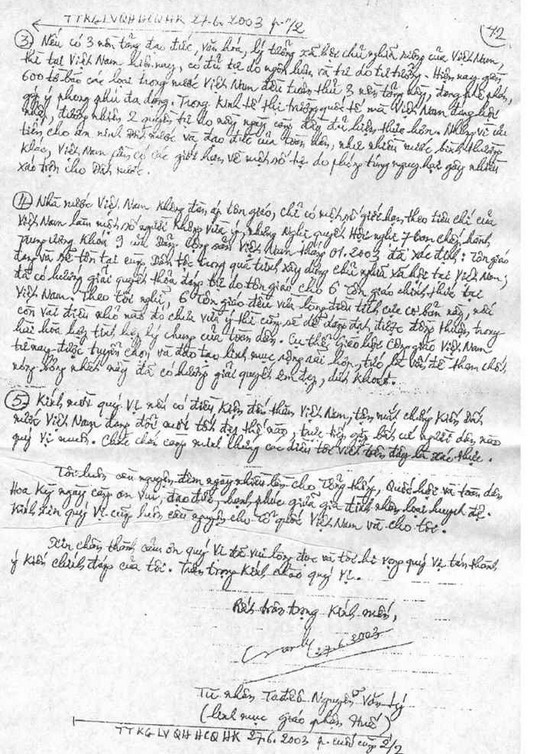 TTKGLVQHHCQHK 27.6.2003 p.1/2
42
③ Nếu có 3 nền tảng đạo đức, văn hóa, lý tưởng xã hội chủ nghĩa riêng của Việt Nam,
thì tại Việt Nam hiện nay, có đủ tự do ngôn luận và tự do tư tưởng. Hiện nay, gần
600 tờ báo các loại trong nước Việt Nam đều tuân thủ 3 nền tảng này, đang phát biểu,
góp ý phong phú đa dạng. Trong kinh tế thị trường quốc tế mà Việt Nam đang hội
nhập, đương nhiên 2 quyền tự do này ngày càng đầy đủ hiện thực hơn. Nhưng vì cải
tiến cho an ninh đất nước và đạo đức của toàn dân, như nhiều nước bình thường
khác, Việt Nam cần có các giới hạn về một số tự do phóng túng nguy hại gây nhiều
xáo trộn cho đất nước.
④ Nhà nước Việt Nam không đàn áp tôn giáo, chỉ có một số giới hạn theo tiêu chí của
Việt Nam làm một số người không vừa ý, nhưng Nghị quyết Hội nghị 7 Ban chấp hành
Trung ương Khóa 9 của Đảng Cộng sản Việt Nam tháng 01.2003 đã xác định: Tôn giáo
đang và sẽ tồn tại cùng dân tộc trong quá trình xây dựng chủ nghĩa xã hội tại Việt Nam;
đã có hướng giải quyết thỏa đáng tự do tôn giáo cho 6 tôn giáo chính thức tại
Việt Nam. Theo tôi nghĩ, 6 tôn giáo đều vui lòng điều tích cực cơ bản này, nếu
còn vài điều nhỏ nào đó chưa vừa ý thì cũng sẽ dễ dàng đạt được đồng thuận trong
hài hòa hợp tình hợp lý chung của toàn dân. Cụ thể: Giáo hội Công giáo Việt Nam
từ nay được tuyển chọn và đào tạo linh mục rộng rãi hơn, trước kia vấn đề
nóng bỏng nhiều năm này đã có hướng giải quyết êm đẹp, dứt khoát.
⑤ Kính mời quý Vị nếu có điều kiện đến thăm Việt Nam, tận mắt chứng kiến Đất
nước Việt Nam đang đổi mới tốt đẹp thế nào, trực tiếp gặp bất cứ người dân nào
quý Vị muốn. Chắc chắn càng minh chứng các điều tôi viết trên đây là xác thực.
Tôi luôn cầu nguyện đêm ngày nhiều lần cho Tổng thống, Quốc hội và toàn dân
Hoa Kỳ ngày càng an vui, đạo đức, hạnh phúc giữa gia đình nhân loại huynh đệ.
Kính xin quý Vị cũng luôn cầu nguyện cho Tổ quốc Việt Nam và cho tôi.
Xin chân thành cảm ơn quý Vị đã vui lòng đọc và tôi hi vọng quý Vị tán thành
ý kiến chính đáng của tôi. Trân trọng kính chào quý Vị.
Rất trân trọng kính mến,
27.6.2003
Tù nhân Tađêô Nguyễn Văn Lý
(linh mục giáo phận Huế)
TTKGLVQHHCQHK 27.6.2003 p. cuối cùng 2/2